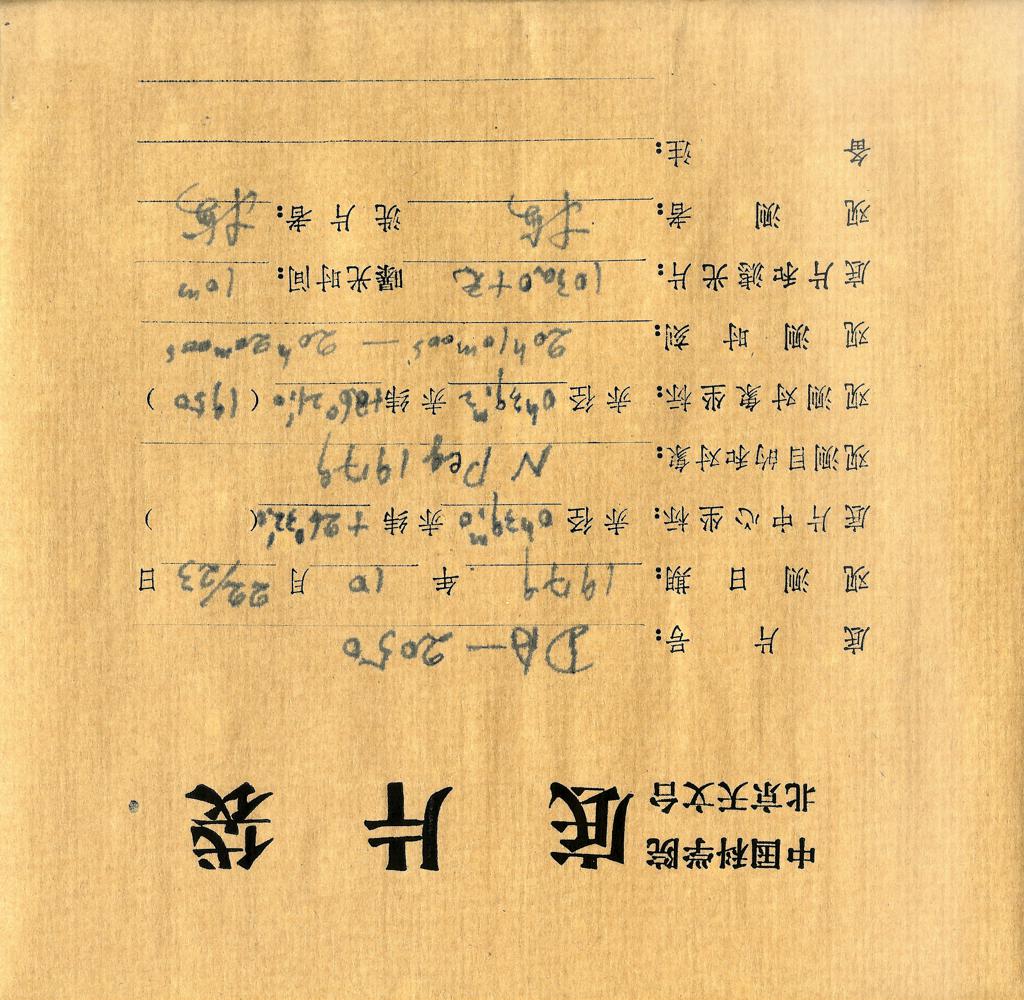 中国科学院
北京天文台 底片袋
底片号: DA—2050
观测日期: 1979年10月22/23日
底片中心坐标: 赤径 0ʰ39ᵐ.0 赤纬 +26°32′.0 ( )
观测目的和对象: N Peg 1979
观测对象坐标: 赤径 0ʰ39ᵐ.2 赤纬 +26°21′.0 (1950)
观测时刻: 20ʰ10ᵐ00ˢ — 20ʰ20ᵐ00ˢ
底片和滤光片: 103aO+无 曝光时间: 10ᵐ
观测者: 洗片者:
备注: